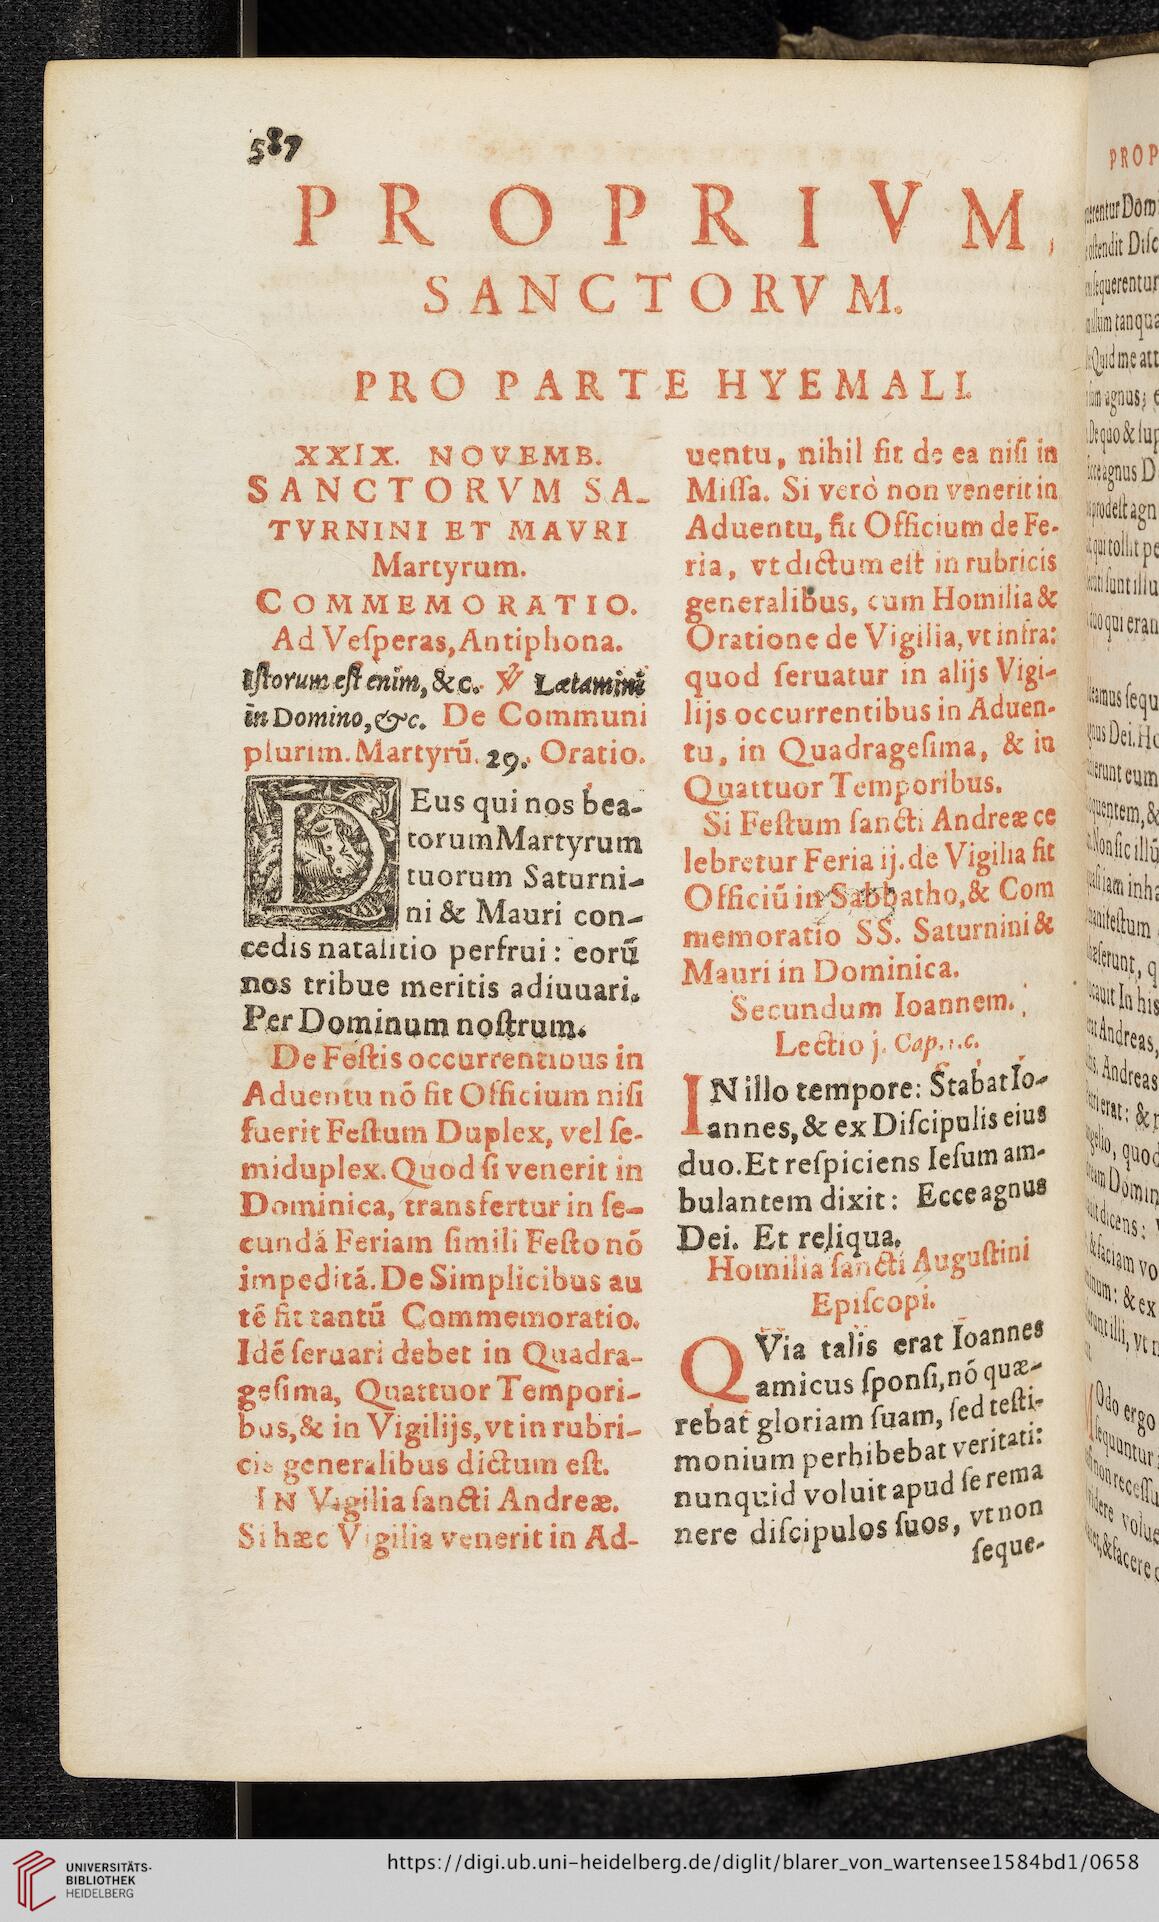 587
PROPRIVM,
SANCTORVM.
PRO PARTE HYEMALI.
XXIX. NOVEMB.
SANCTORVM SA-
TVRNINI ET MAVRI
Martyrum.
COMMEMORATIO.
Ad Veſperas, Antiphona.
Iſtorum eſt enim, &c. ℣ Lætamini
in Domino, &c. De Communi
plurim. Martyrũ. 29. Oratio.
DEus qui nos bea-
torum Martyrum
tuorum Saturni-
ni & Mauri con-
cedis natalitio perfrui: eorũ
nos tribue meritis adiuuari.
Per Dominum noſtrum.
De Feſtis occurrentibus in
Aduentu nõ fit Officium niſi
fuerit Feſtum Duplex, vel ſe-
miduplex. Quod ſi venerit in
Dominica, transfertur in ſe-
cundã Feriam ſimili Feſto nõ
impeditã. De Simplicibus au
tẽ fit tantũ Commemoratio.
Idẽ ſeruari debet in Quadra-
geſima, Quattuor Tempori-
bus, & in Vigilijs, vt in rubri-
cis generalibus dictum eſt.
IN Vigilia ſancti Andreæ.
Si hæc Vigilia venerit in Ad-
uentu, nihil fit de ea niſi in
Miſſa. Si verò non venerit in
Aduentu, fit Officium de Fe-
ria, vt dictum eſt in rubricis
generalibus, cum Homilia &
Oratione de Vigilia, vt infra:
quod ſeruatur in alijs Vigi-
lijs occurrentibus in Aduen-
tu, in Quadrageſima, & in
Quattuor Temporibus.
Si Feſtum ſancti Andreæ ce
lebretur Feria ij. de Vigilia fit
Officiũ in Sabbatho, & Com
memoratio SS. Saturnini &
Mauri in Dominica.
Secundum Ioannem.
Lectio j. Cap. 1. c.
IN illo tempore: Stabat Io-
annes, & ex Diſcipulis eius
duo. Et reſpiciens Ieſum am-
bulantem dixit: Ecce agnus
Dei. Et reliqua.
Homilia ſancti Auguſtini
Epiſcopi.
QVia talis erat Ioannes
amicus ſponſi, nõ quæ-
rebat gloriam ſuam, ſed teſti-
monium perhibebat veritati:
nunquid voluit apud ſe rema
nere diſcipulos ſuos, vt non
ſeque-
PROP
UNIVERSITÄTS-
BIBLIOTHEK
HEIDELBERG
https://digi.ub.uni-heidelberg.de/diglit/blarer_von_wartensee1584bd1/0658